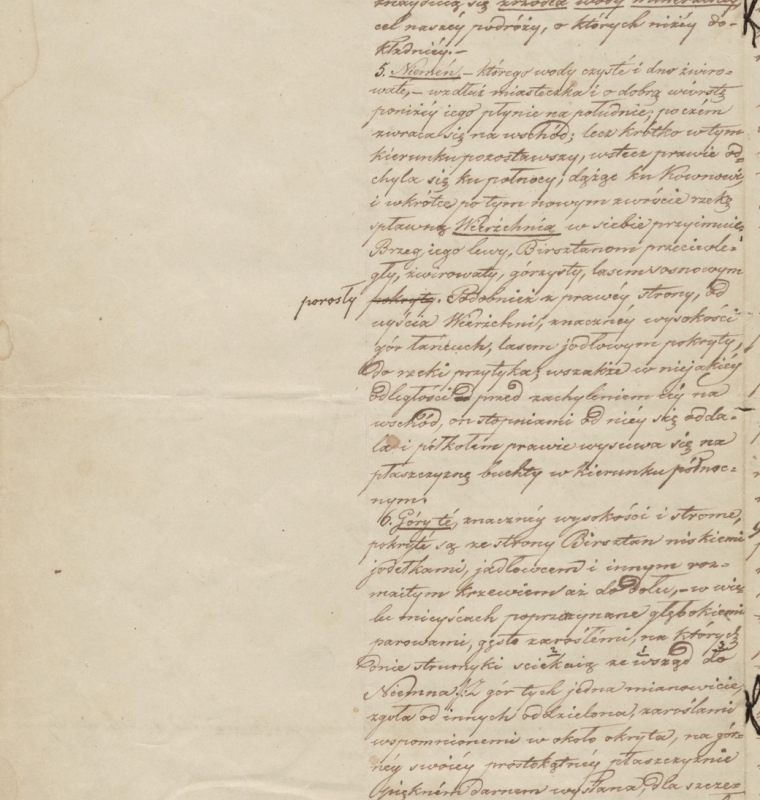 znayduią się źrzódła wody mineralney,
cel naszéy podróży, o których niżéy do-
kładniéy.-
5. Niemén, - którego wody czysté i dno żwiro-
waté, - wzdłuż miasteczka i o dobrą wiorstę
poniżéy iego płynie na południe; poczém
zwraca się na wschód; lecz krótko w tym
kierunku pozostawszy, wstecz prawie od-
chyla się ku północy; dążąc ku Kownowi,
i wkrótce po tym nowym zwrócie rzekę
spławną Wierzchnią w siebie przyimuie.
Brzeg iego lewy, Birsztanom przeciwle-
gły, żwirowaty, górzysty, lasem sosnowym
porosły pokryty. Podobnież z prawéy strony, od
uyścia Wierzchni, znacznéy wysokości
gór łańcuch, lasem jodłowym pokryty,
do rzeki przytyka; wszakże w niejakiéy
odległości przed zachyleniem się na
wschód, on stopniami od niéy się odda-
la i półkolem prawie wysuwa się na
płaszczyznę buchty w kierunku północ-
nym.
6. Góry té, znacznéy wysokości i stromé,
pokryté są ze strony Birsztan niskiemi
jodełkami, jadłowcem i innym roz-
maitym krzewiem aż do dołu, - w wie-
lu mieyscach poprzerzynane głębokiemi
parowami, gęsto zarosłémi, na których
dnie strumyki ściekaią ze wsząd do
Niemna. Z gór tych jedna mianowicie,
zgoła od innych oddzielona, zaroślami
wspomnionemi w około okryta, na gór-
néy swoiéy prostokątnéy płaszczyznie
piękném darnem wysłana, dla szcze-